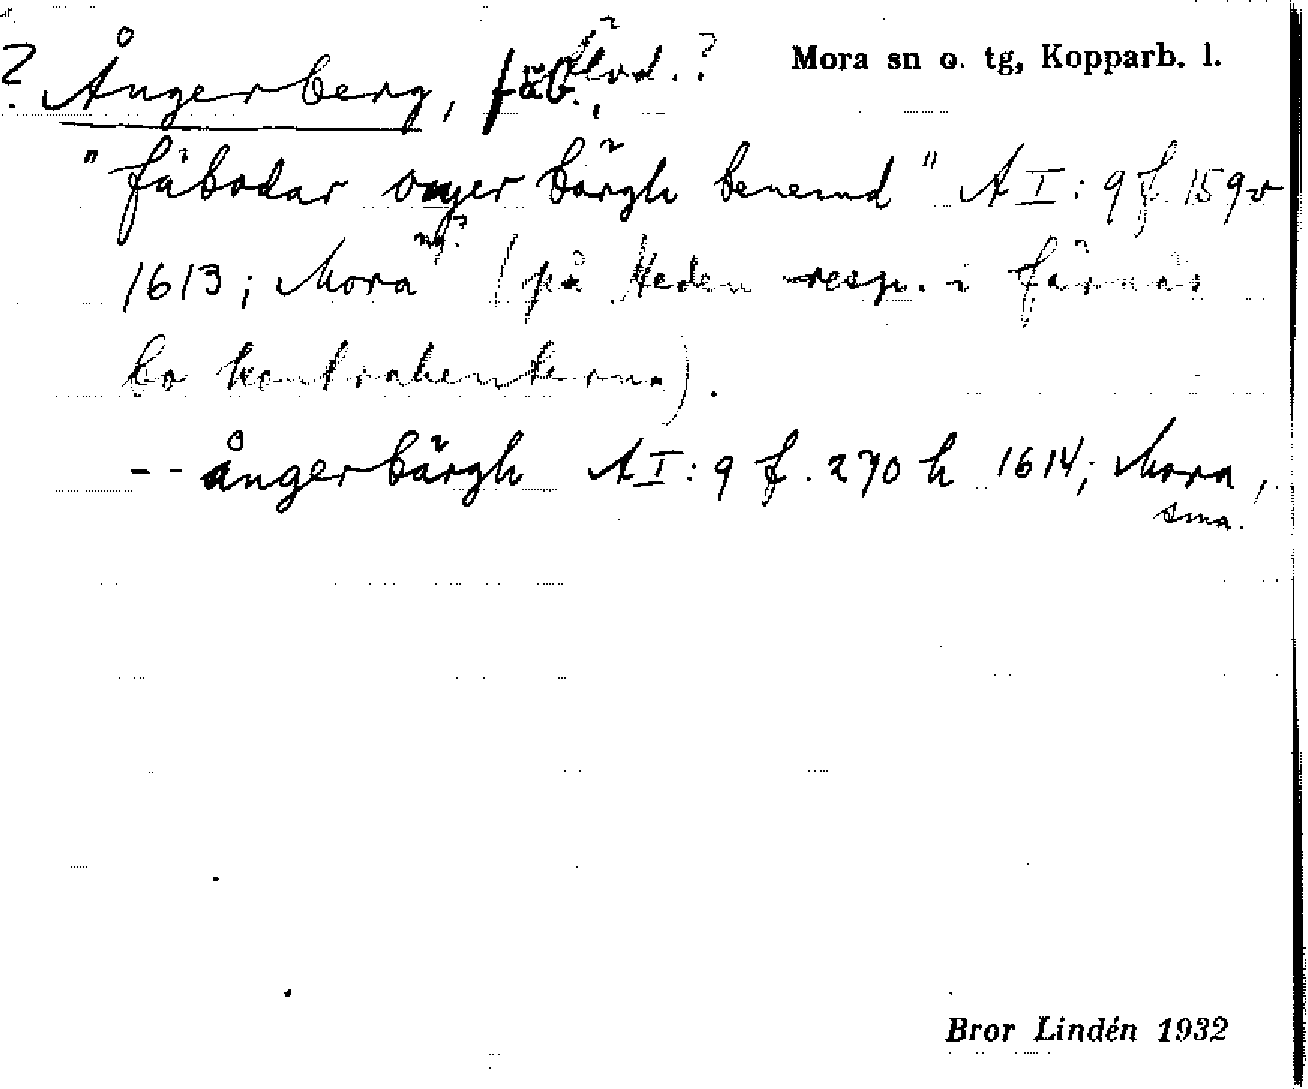 ? Ångerberg, fäb., Älvd.?
Mora sn o. tg, Kopparb. l.
"fäbodar onger bärgh benemd" A I: 9 f. 159v
ng?
1613; Mora (på Heden resp. i Färnäs
bo kontrahenterna).
-- ångerbärgh A I: 9 f. 270 h 1614; Mora,
sma.
Bror Lindén 1932